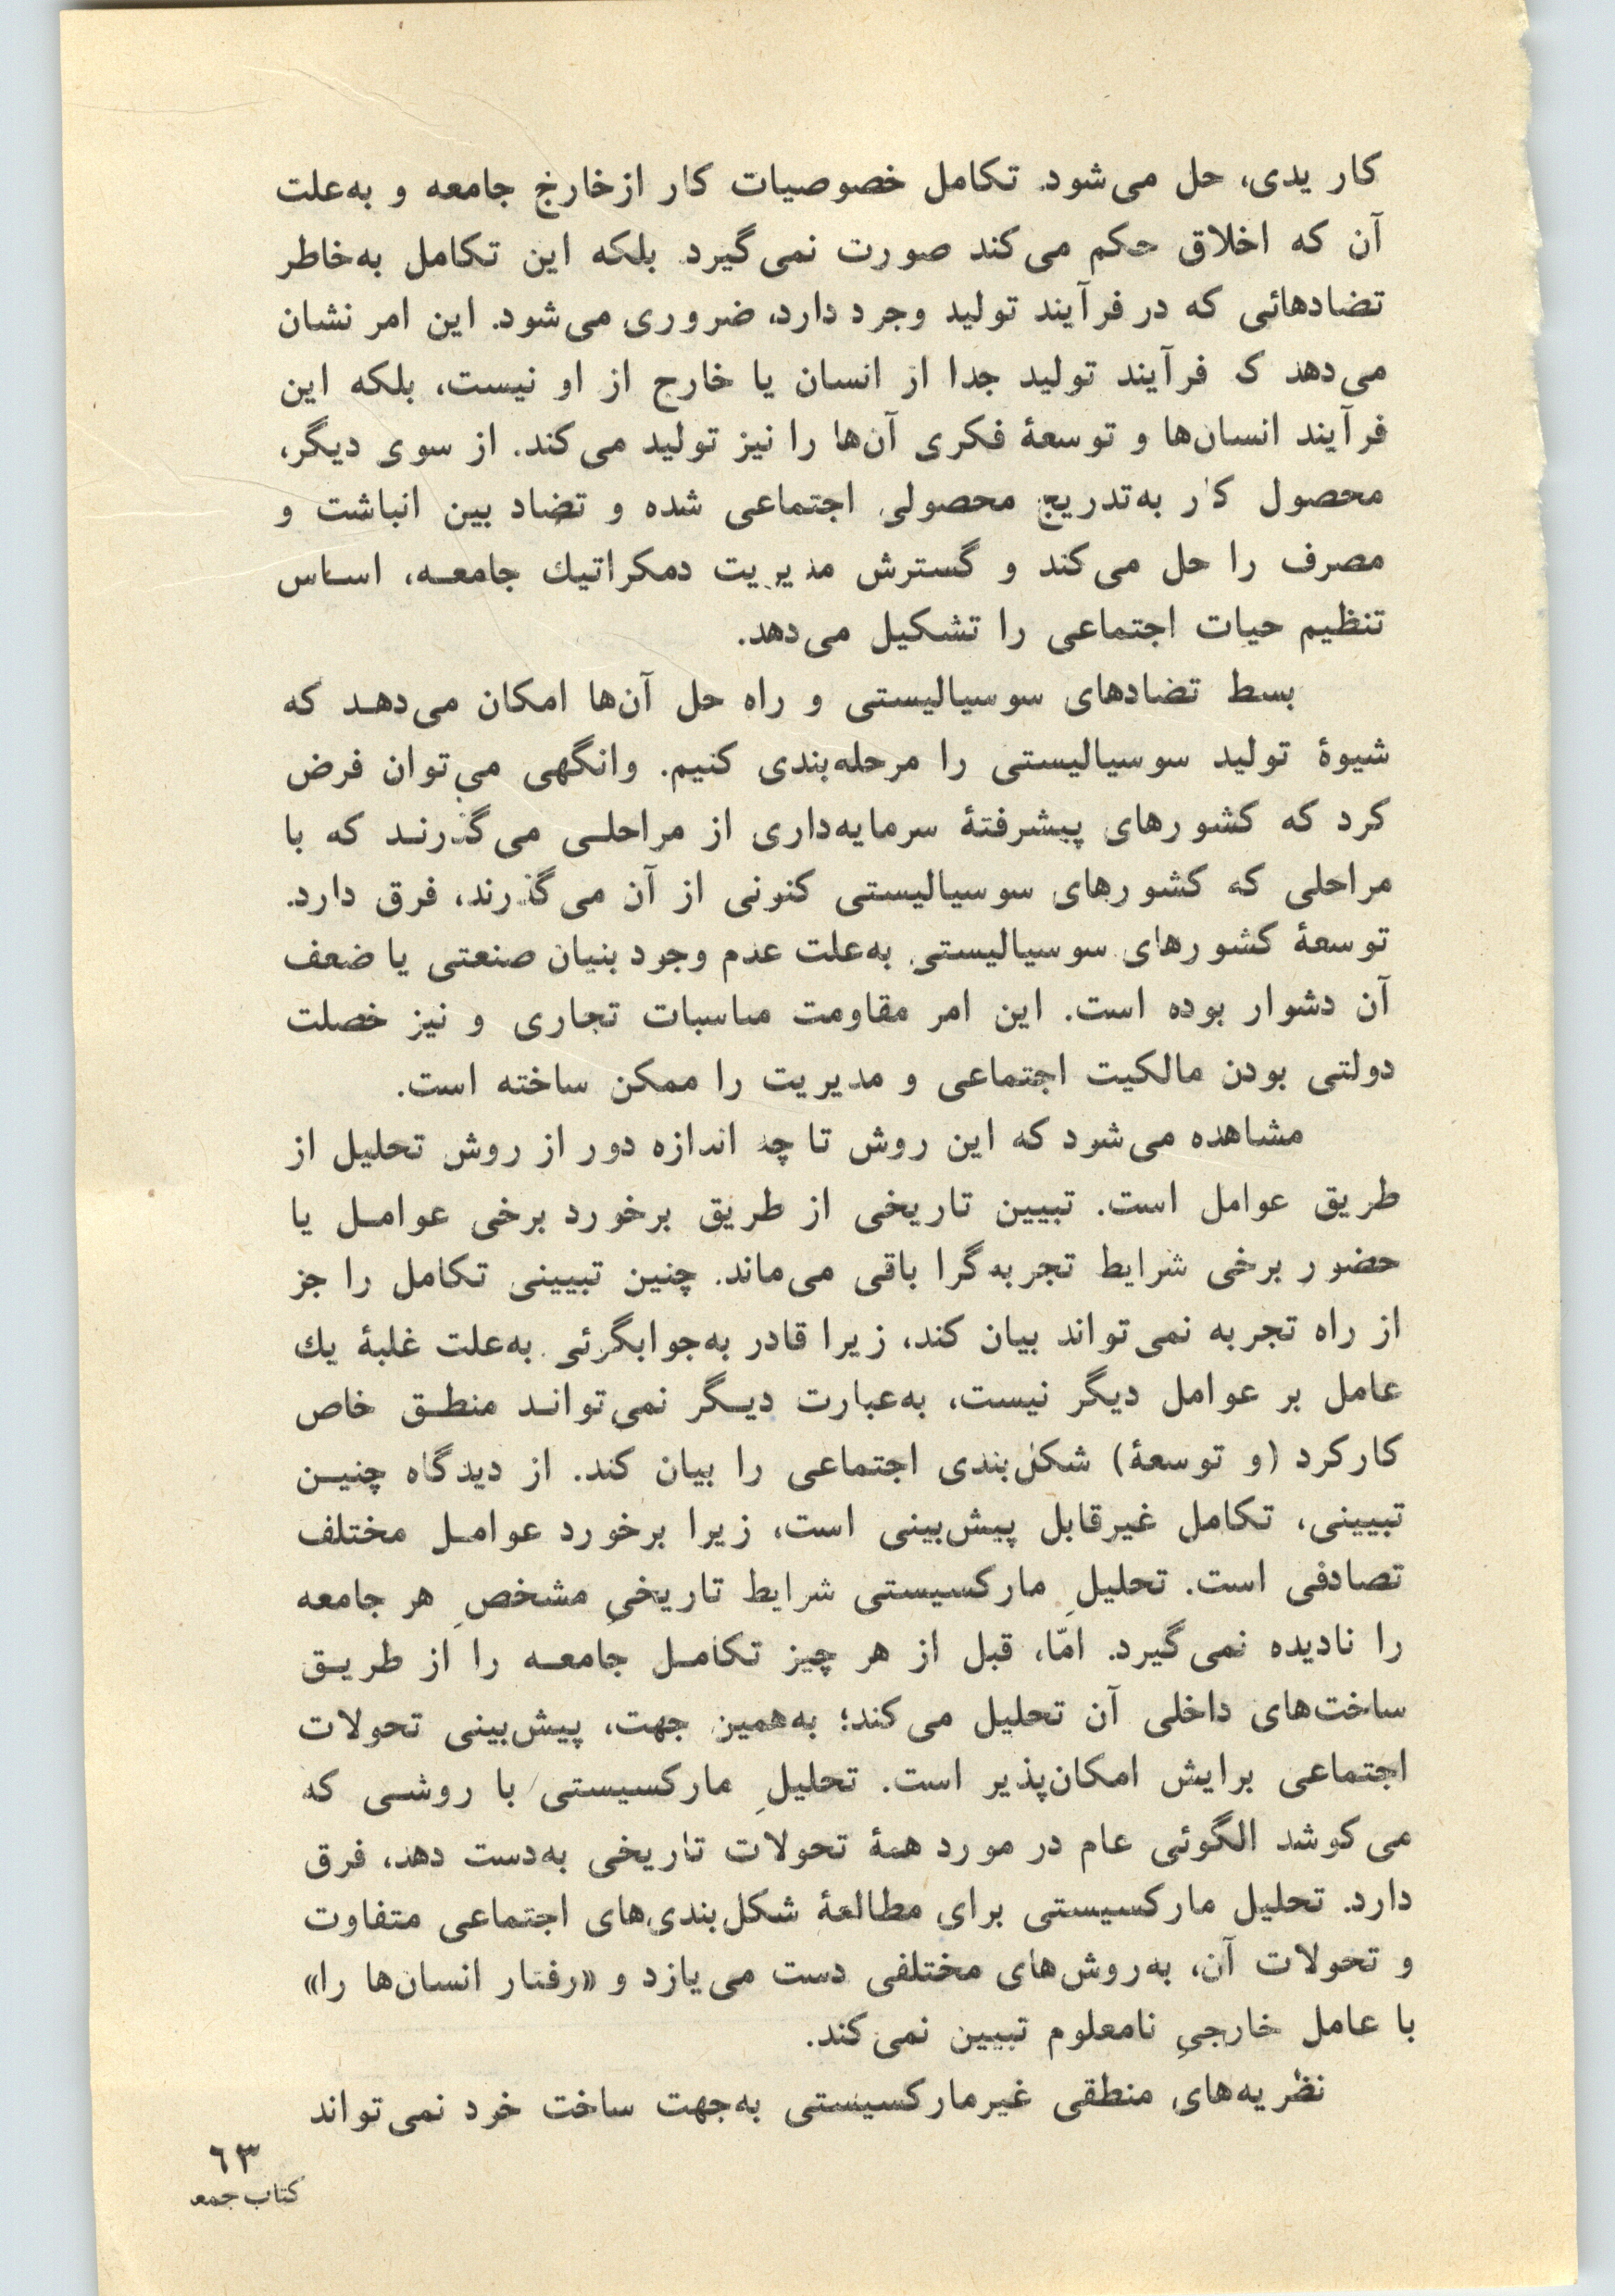 کار یدی، حل می‌شود. تکامل خصوصیات کار از خارج جامعه و به‌علت
آن که اخلاق حکم می‌کند صورت نمی‌گیرد. بلکه این تکامل به‌خاطر
تضادهائی که در فرآیند تولید وجود دارد، ضروری می‌شود. این امر نشان
می‌دهد که فرآیند تولید جدا از انسان یا خارج از او نیست، بلکه این
فرآیند انسان‌ها و توسعهٔ فکری آن‌ها را نیز تولید می‌کند. از سوی دیگر،
محصول کار به‌تدریج محصولی اجتماعی شده و تضاد بین انباشت و
مصرف را حل می‌کند و گسترش مدیریت دمکراتیك جامعـه، اسـاس
تنظیم حیات اجتماعی را تشکیل می‌دهد.
بسط تضادهای سوسیالیستی و راه حل آن‌ها امکان می‌دهـد که
شیوهٔ تولید سوسیالیستی را مرحله‌بندی کنیم. وانگهی می‌توان فرض
کرد که کشورهای پیشرفتهٔ سرمایه‌داری از مراحلـی می‌گذرنـد که با
مراحلی که کشورهای سوسیالیستی کنونی از آن می‌گذرند، فرق دارد.
توسعهٔ کشورهای سوسیالیستی به‌علت عدم وجود بنیان صنعتی یا ضعف
آن دشوار بوده است. این امر مقاومت مناسبات تجاری و نیز خصلت
دولتی بودن مالکیت اجتماعی و مدیریت را ممکن ساخته است.
مشاهده می‌شود که این روش تا چه اندازه دور از روش تحلیل از
طریق عوامل است. تبیین تاریخی از طریق برخورد برخی عوامـل یا
حضور برخی شرایط تجربه‌گرا باقی می‌ماند. چنین تبیینی تکامل را جز
از راه تجربه نمی‌تواند بیان کند، زیرا قادر به‌جوابگوئی به‌علت غلبهٔ یك
عامل بر عوامل دیگر نیست، به‌عبارت دیـگر نمی‌توانـد منطـق خاص
کارکرد (و توسعهٔ) شکل‌بندی اجتماعی را بیان کند. از دیدگاه چنیـن
تبیینی، تکامل غیرقابل پیش‌بینی است، زیرا برخورد عوامـل مختلف
تصادفی است. تحلیلِ مارکسیستی شرایط تاریخیِ مشخصِ هر جامعه
را نادیده نمی‌گیرد. امّا، قبل از هر چیز تکامـل جامعـه را از طریـق
ساخت‌های داخلی آن تحلیل می‌کند؛ به‌همین جهت، پیش‌بینی تحولات
اجتماعی برایش امکان‌پذیر است. تحلیلِ مارکسیستی با روشـی که
می‌کوشد الگوئی عام در مورد همهٔ تحولات تاریخی به‌دست دهد، فرق
دارد. تحلیل مارکسیستی برای مطالعهٔ شکل‌بندی‌های اجتماعی متفاوت
و تحولات آن، به‌روش‌های مختلفی دست می‌یازد و «رفتار انسان‌ها را»
با عامل خارجیِ نامعلوم تبیین نمی‌کند.
نظریه‌های منطقی غیرمارکسیستی به‌جهت ساخت خود نمی‌تواند
۶۳
کتاب جمعه